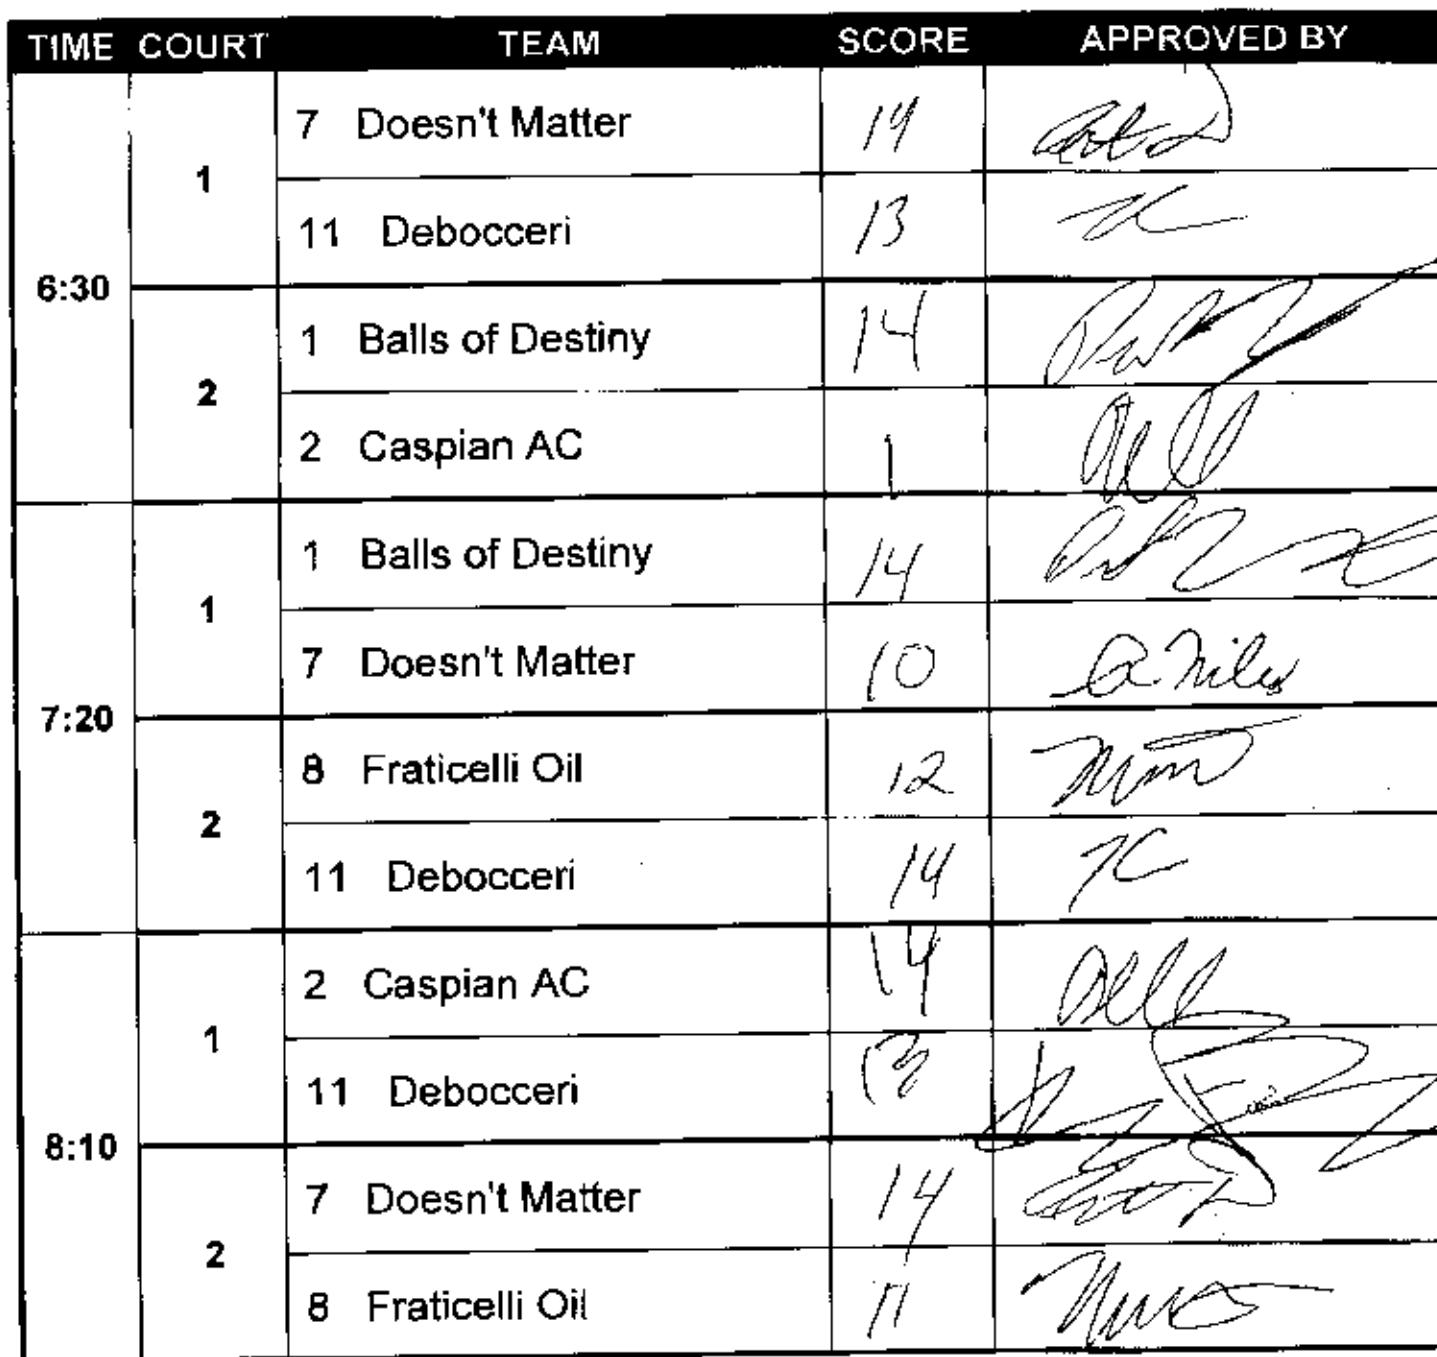 TIME COURT TEAM SCORE APPROVED BY
6:30
1
7 Doesn't Matter 14
11 Debocceri 13
2
1 Balls of Destiny 14
2 Caspian AC 1
7:20
1
1 Balls of Destiny 14
7 Doesn't Matter 10
2
8 Fraticelli Oil 12
11 Debocceri 14
8:10
1
2 Caspian AC 14
11 Debocceri 13
2
7 Doesn't Matter 14
8 Fraticelli Oil 11